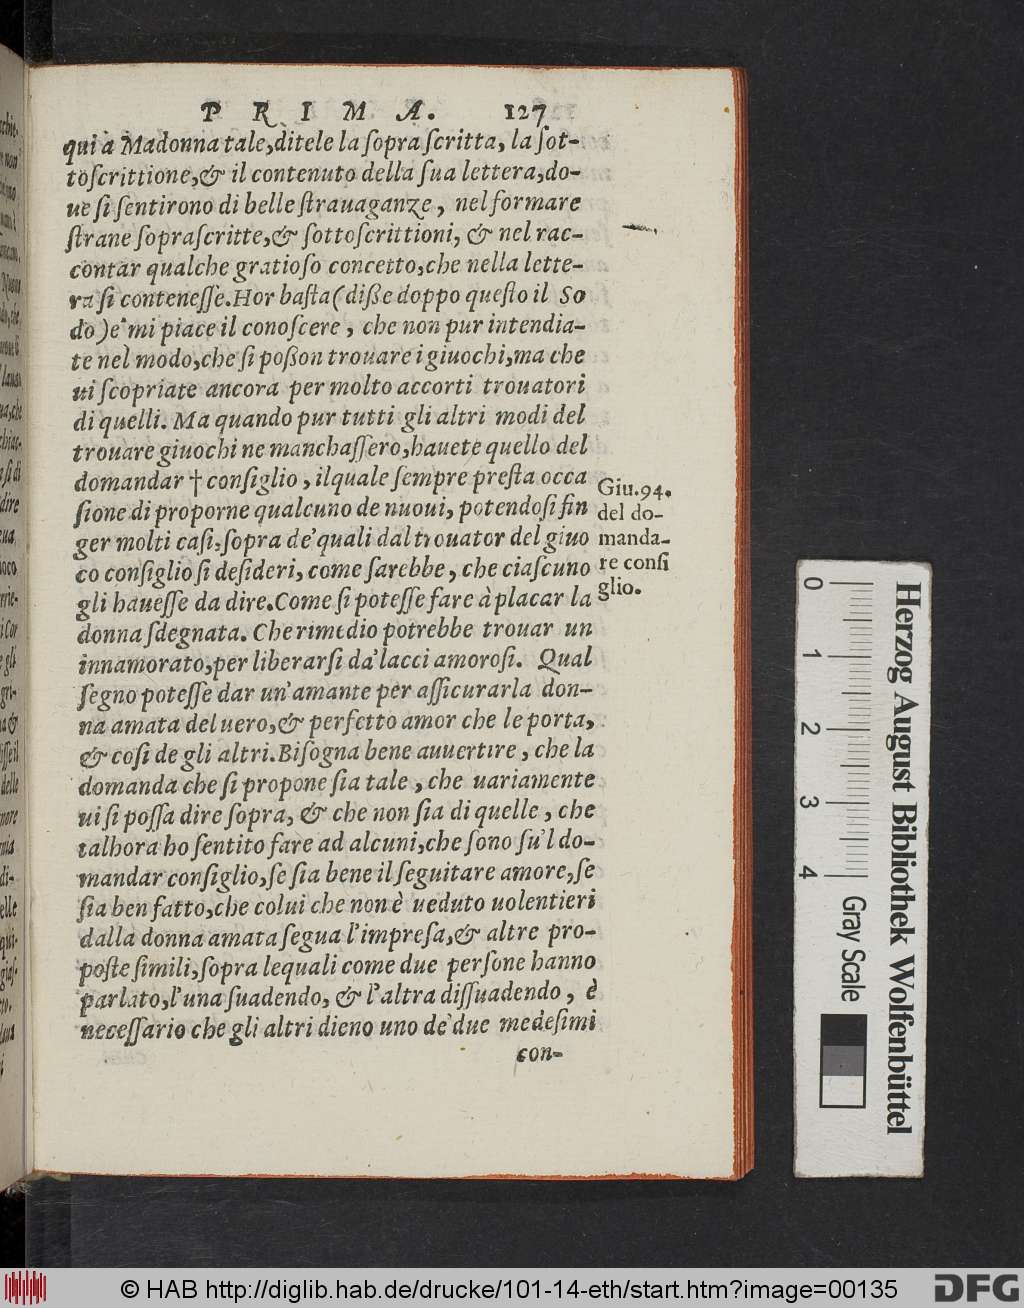 PRIMA. 127
qui à Madonna tale,ditele la ſopra ſcritta, la ſot-
toſcrittione,& il contenuto della ſua lettera,do-
ue ſi ſentirono di belle ſtrauaganze, nel formare
ſtrane ſopraſcritte,& ſottoſcrittioni, & nel rac-
contar qualche gratioſo concetto,che nella lette-
ra ſi conteneſſe.Hor baſta(diße doppo queſto il So
do)e' mi piace il conoſcere, che non pur intendia-
te nel modo,che ſi poßon trouare i giuochi,ma che
ui ſcopriate ancora per molto accorti trouatori
di quelli. Ma quando pur tutti gli altri modi del
trouare giuochi ne manchaſſero,hauete quello del
domandar † conſiglio, ilquale ſempre preſta occa
ſione di proporne qualcuno de nuoui, potendoſi fin
ger molti caſi,ſopra de' quali dal trouator del giuo
co conſiglio ſi deſideri, come ſarebbe, che ciaſcuno
gli haueſſe da dire.Come ſi poteſſe fare à placar la
donna ſdegnata. Che rimedio potrebbe trouar un
innamorato,per liberarſi da' lacci amoroſi. Qual
ſegno poteſſe dar un'amante per aſſicurarla don-
na amata del uero,& perfetto amor che le porta,
& coſi de gli altri.Biſogna bene auuertire, che la
domanda che ſi propone ſia tale, che uariamente
ui ſi poſſa dire ſopra, & che non ſia di quelle, che
talhora ho ſentito fare ad alcuni,che ſono ſu'l do-
mandar conſiglio,ſe ſia bene il ſeguitare amore,ſe
ſia ben fatto,che colui che non è ueduto uolentieri
dalla donna amata ſegua l'impreſa,& altre pro-
poſte ſimili,ſopra lequali come due perſone hanno
parlato,l'una ſuadendo, & l'altra diſſuadendo, è
neceſſario che gli altri dieno uno de' due medeſimi
con-
Giu.94.
del do-
manda-
re conſi
glio.
0 1 2 3 4
Gray Scale
Herzog August Bibliothek Wolfenbüttel
© HAB http://diglib.hab.de/drucke/101-14-eth/start.htm?image=00135
DFG